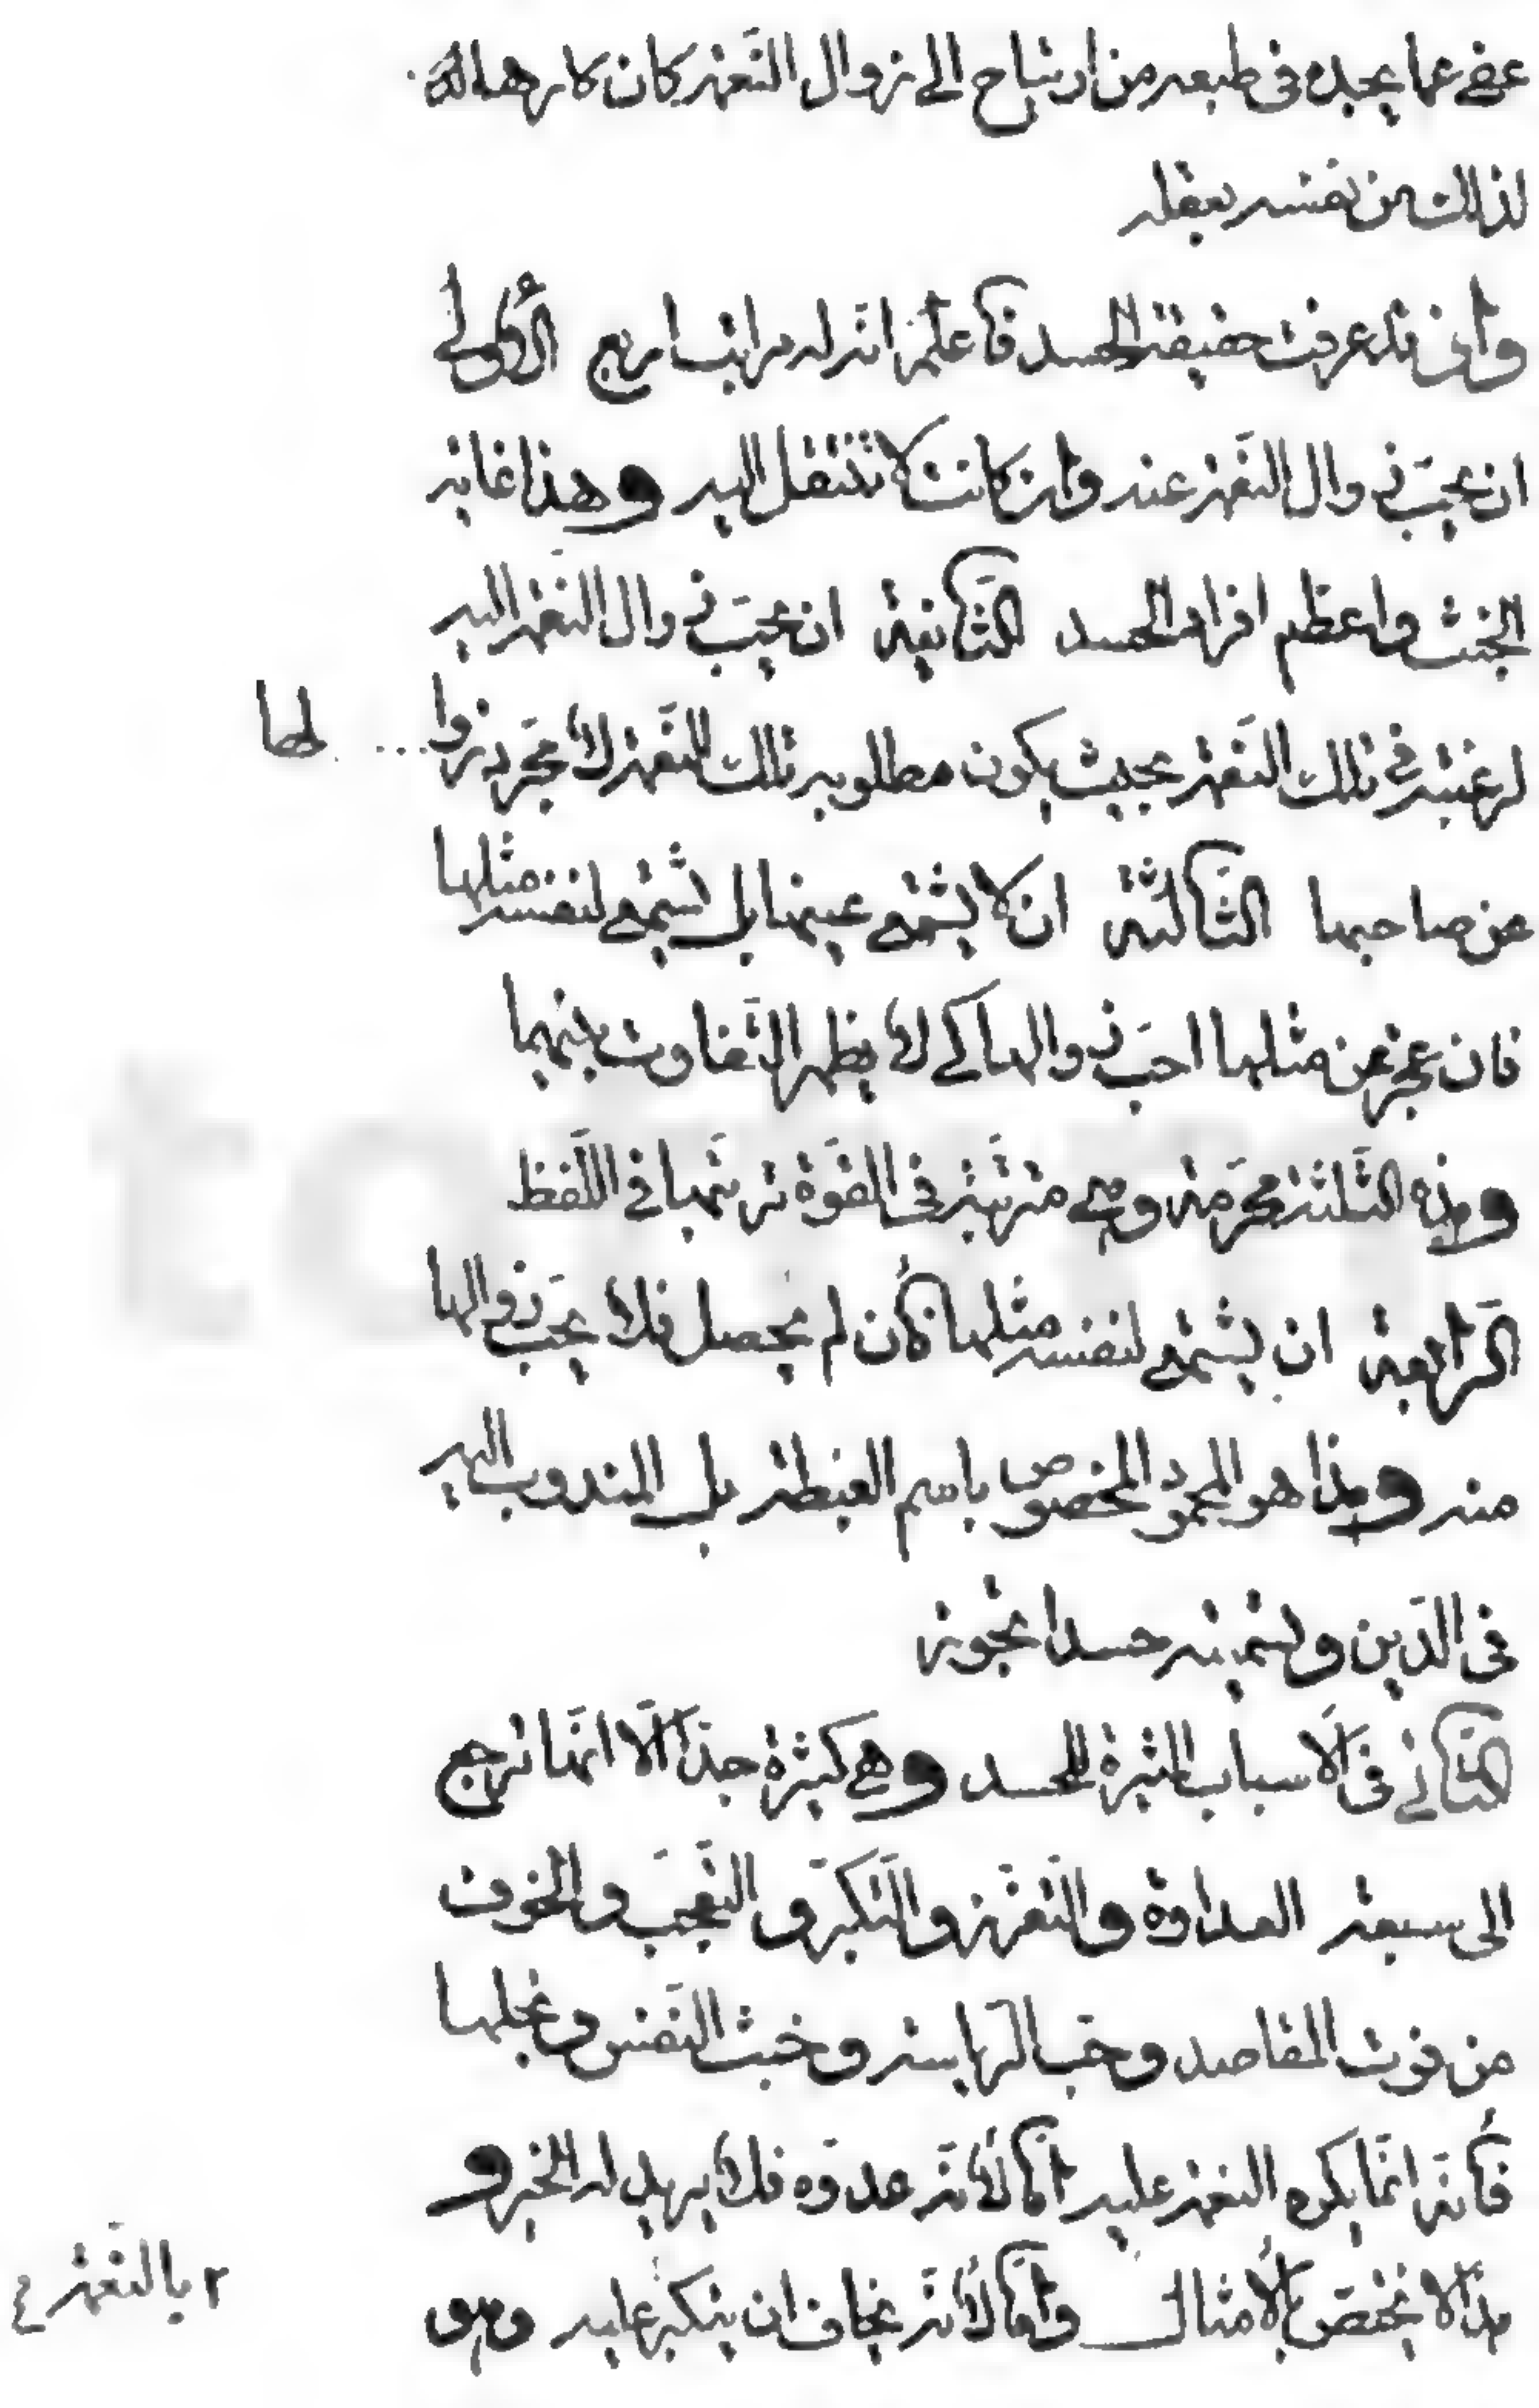 عفى عما يجده فى طبعه من ارتياح الى زوال النّعمة كان كارها له
لذلك من نفسه بعقله
واذ قد عرفت حقيقة الحسد فاعلم انّ له مراتب اربع الأولى
ان يحبّ زوال النّعمة عنه وان كانت لا تنتقل اليه وهذا غاية
الخبث واعظم افراد الحسد الثّانية ان يحبّ زوال النّعمة اليه
لرغبته فى تلك النّعمة بحيث يكون مطلوبه تلك النّعمة لا مجرّد زوا... لها
عن صاحبها الثّالثة ان لا يشتهى عينها بل يشتهى لنفسه مثلها
فان عجز عن مثلها احبّ زوالها كى لا يظهر التّفاوت بينهما
وهذه الثّلثة محرّمة وهى مترتّبة فى القوّة ترتّبها فى اللّفظ
الرّابعة ان يشتهى لنفسه مثلها فان لم يحصل فلا يحبّ زوالها
منه وهذا هو المحمود المخصوص باسم الغبطة بل المندوب اليه
فى الدّين وتسميته حسدا تجوز
الثّانى فى الاسباب المثيرة للحسد وهى كثيرة جدّا الّا انّها ترجع
الى سبعة العداوة والتّعزّز والتّكبّر والتّعجّب والخوف
من فوت المقاصد وحبّ الرّياسة وخبث النّفس وبخلها
فانّه انّما يكره النّعمة عليه امّا لأنّه عدوّه فلا يريد له الخير و
هذا لا يختصّ بالأمثال وامّا لأنّه يخاف ان يتكبّر عليه وهو
٢ بالنّعمة ع